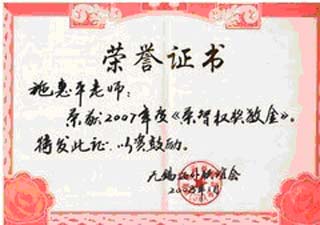 荣誉证书
施惠平老师：
荣获2007年度《荣智权奖教金》。
特发此证，以资鼓励。
无锡海外联谊会
2008年1月